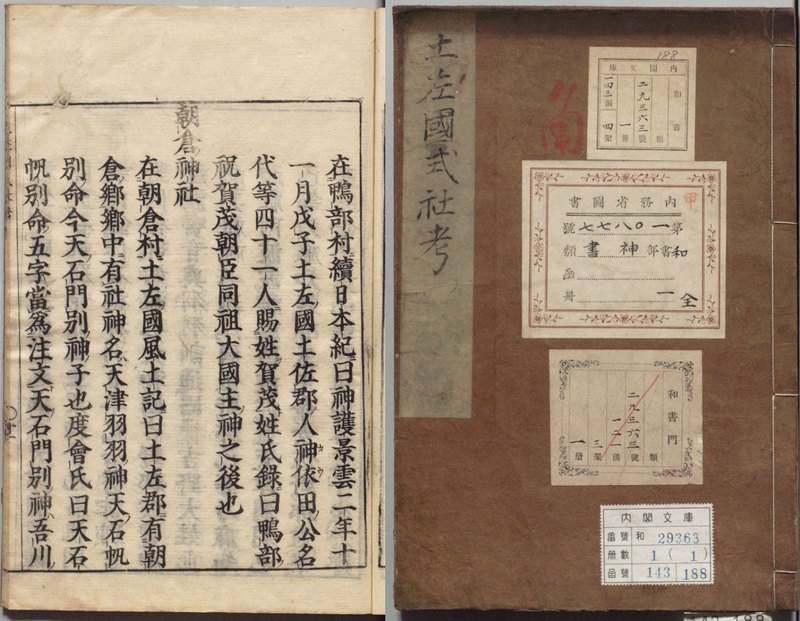 在鴨部村續日本紀曰神護景雲二年十
一月戊子土左國土佐郡人神依田公名
代等四十一人賜姓賀茂姓氏錄曰鴨部
祝賀茂朝臣同祖大國主神之後也
朝倉神社
在朝倉村土左國風土記曰土左郡有朝
倉鄉鄉中有社神名天津羽羽神天石帆
別命今天石門別神子也度會氏曰天石
帆別命五字當爲注文天石門別神吾川
土左國式社考
188
內閣文庫
和書類
二九三六三號
一冊
一四三函
四架
甲
內務省圖書
第一〇八七七號
和書部神書類
函
一冊
全
和書門
類
二九三六三號
一二一函
三架
一冊
内閣文庫
番號 和 29363
冊數 1 (1)
函號 143 188